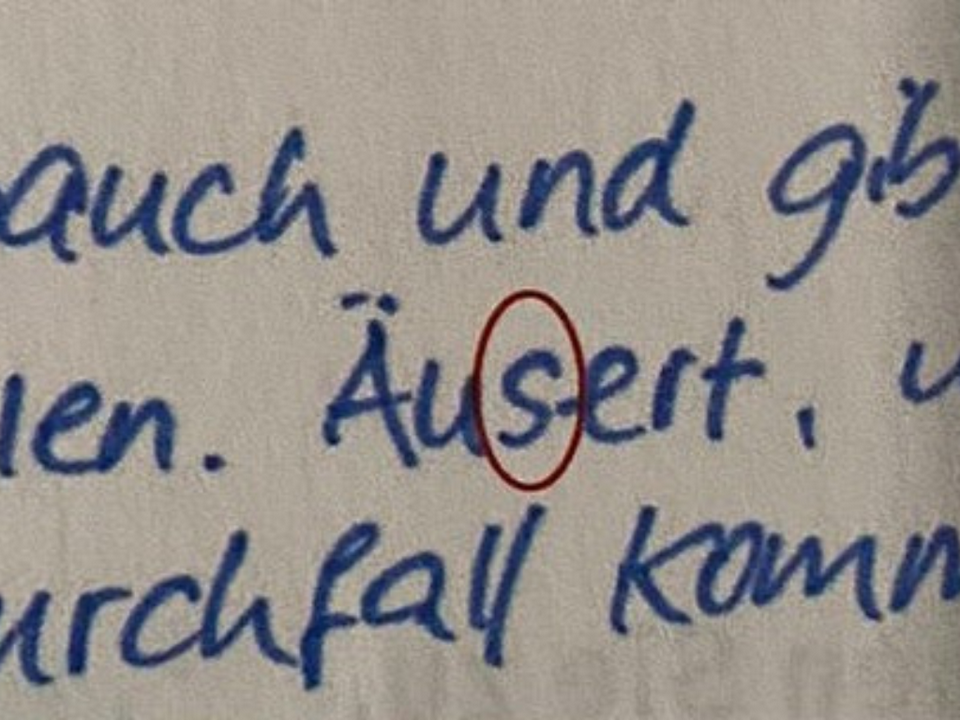 auch und gib
len. Äusert, u
urchfall komm